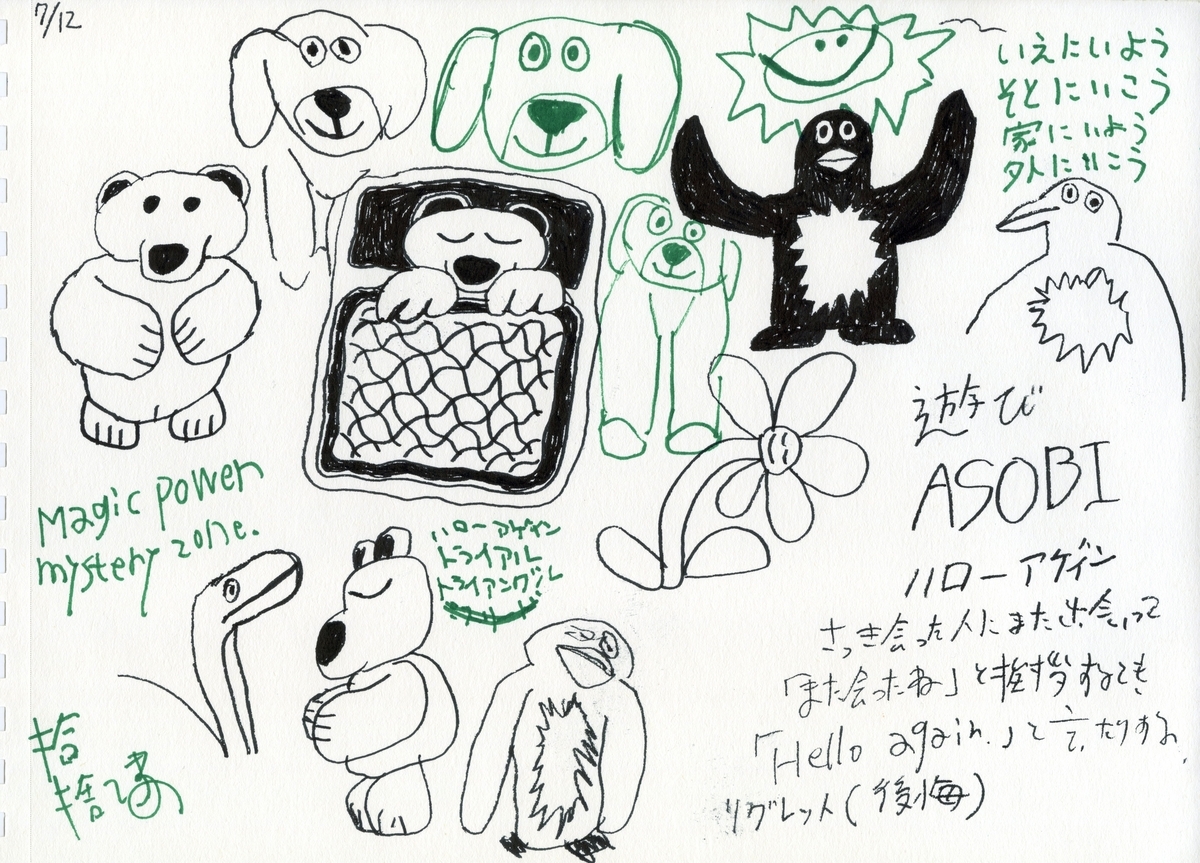 7/12
いえにいよう
そとにいこう
家にいよう
外にいこう
遊び
ASOBI
Magic power
mystery zone.
ハローアゲイン
トライアル
トライアングル
ハローアゲイン
さっき会った人にまた出会って
「また会ったね」と挨拶するとき
「Hello again.」と言ったりする。
リグレット(後悔)
捨
捨てる